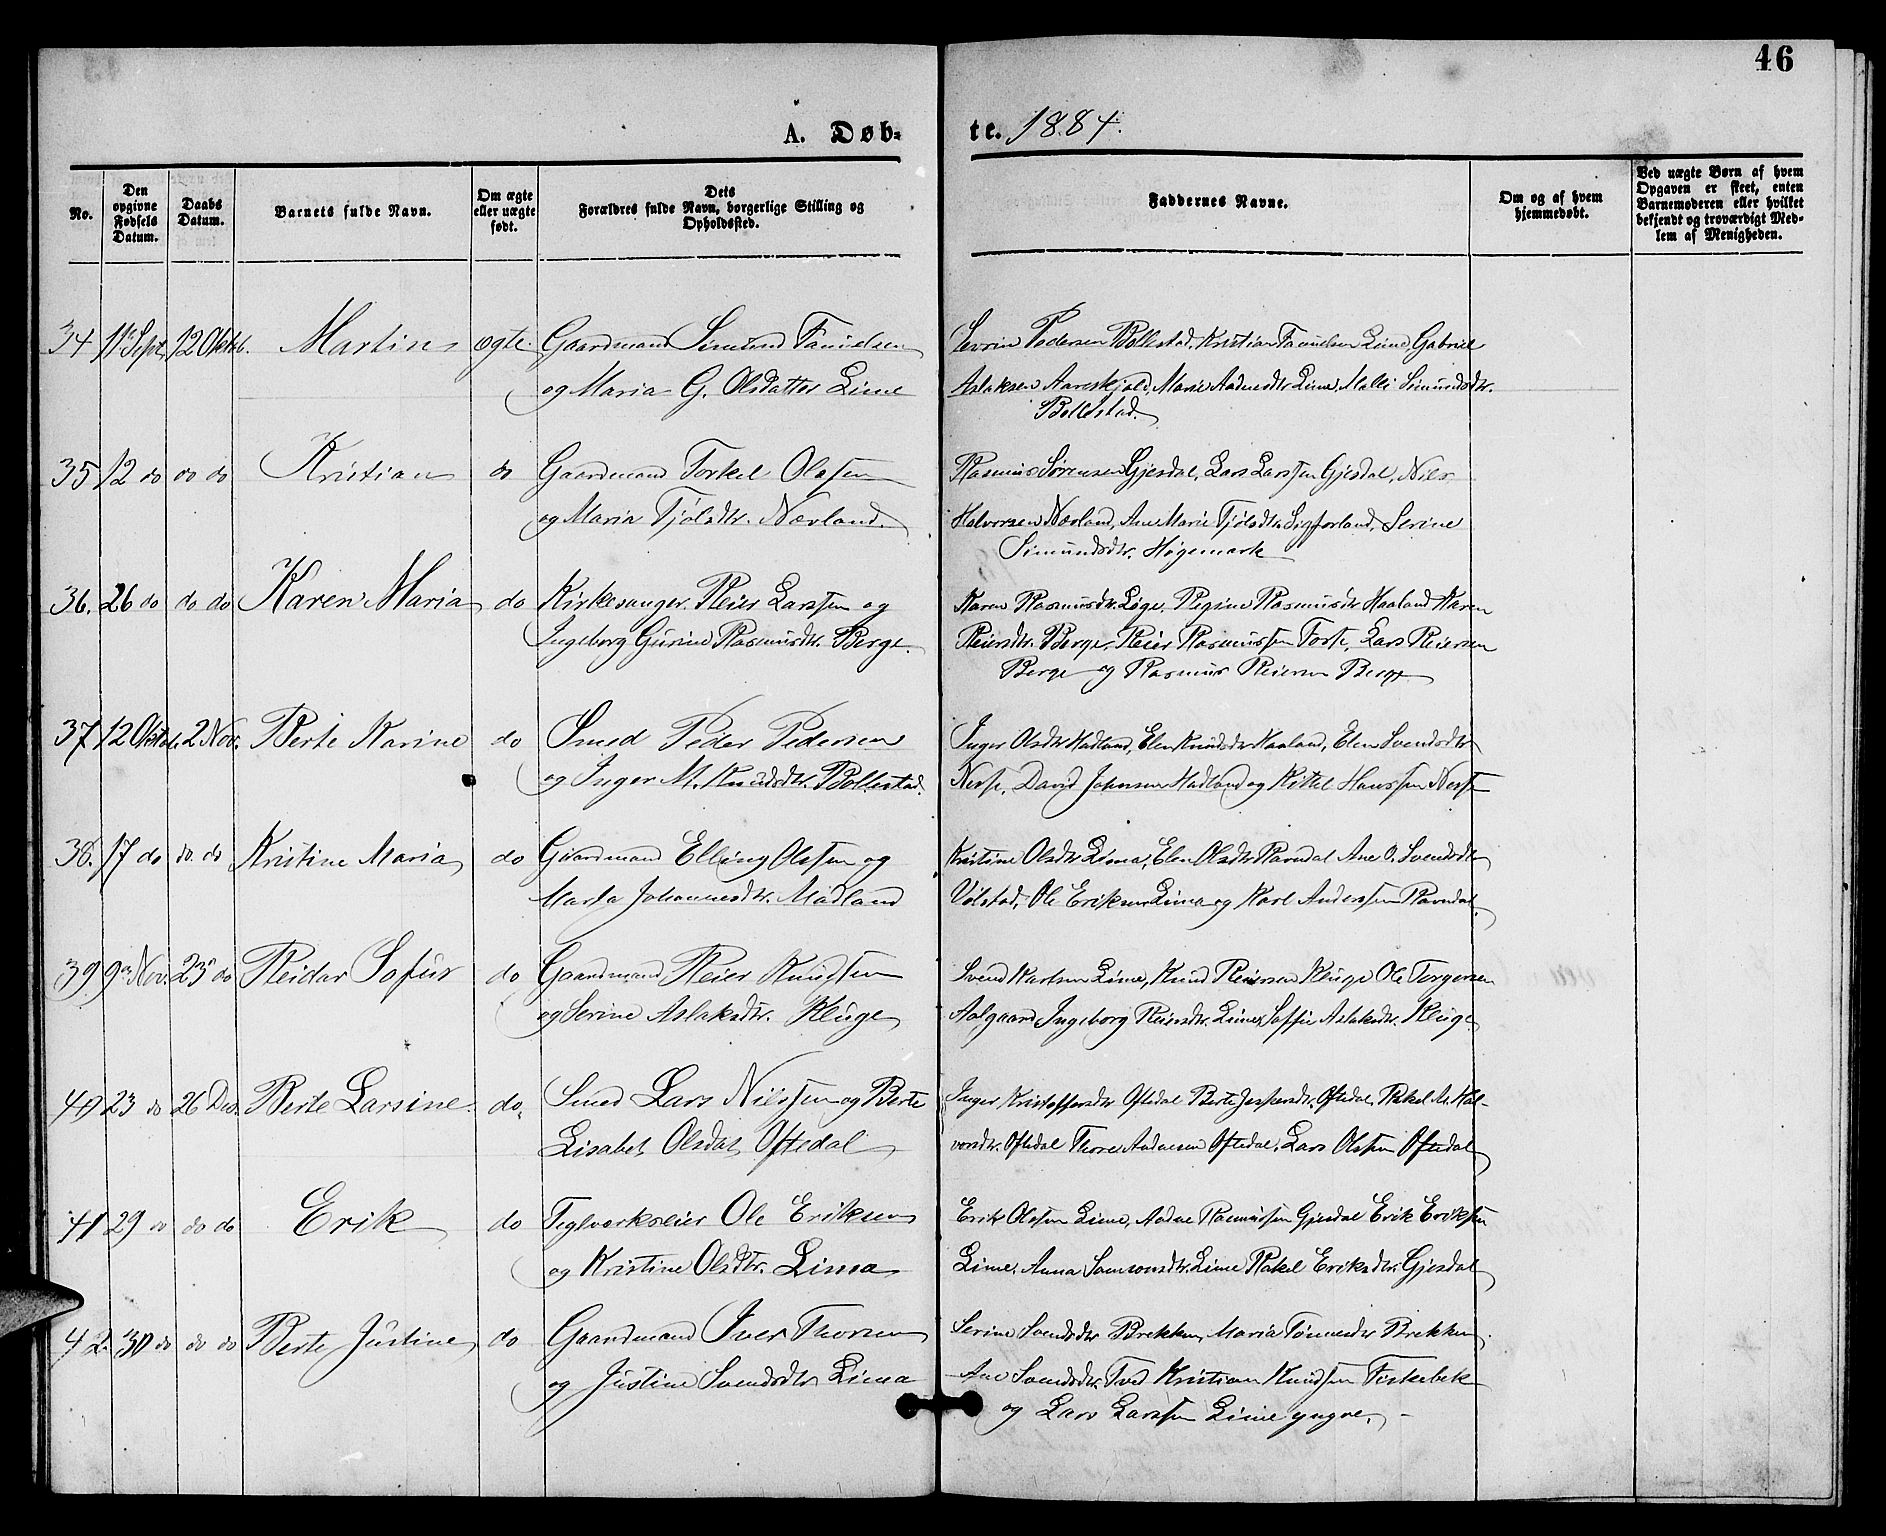 46
A. Døb-
te. 1884.
No.
Den
opgivne
Fødsels
Datum.
Daabs
Datum.
Barnets fulde Navn.
Om ægte
eller uægte
født.
Dets
Forældres fulde Navn, borgerlige Stilling og
Opholdssted.
Faddernes Navne.
Om og af hvem
hjemmedøbt.
Ved uægte Børn af hvem
Opgaven er skeet, enten
Barnemoderen eller hvilket
bekjendt og troværdigt Med-
lem af Menigheden.
34 11 Sept. 12 Oktob. Martin ægte. Gaardmand Simund Tanielsen
og Maria G. Olsdatter Lime
Sevrin Pedersen Bollestad, Kristian Tanielsen Lime, Gabriel
Aslaksen Aareskjold, Marie Aadnesdtr. Lime, Malli Simundsdtr.
Bollestad.
35 12 do do do Kristian do Gaardmand Torkel Olsen
og Maria Tjølsdtr. Nævland.
Rasmus Sørensen Gjesdal, Lars Larssen Gjesdal, Niels
Halvorsen Nævland, Ane Marie Tjølsdtr. Serine
Simundsdtr. Høgemark
36. 26 do do do Karen Maria do Kirkesanger Reier Larssen og
Ingeborg Gurine Rasmusdtr. Berge.
Karen Rasmusdtr. Løge, Regine Rasmusdtr Haaland Karen
Reiersdtr. Berge, Reier Rasmussen Torte, Lars Reiersen
Berge og Rasmus Reiersen Berge
37 12 Oktob. 2 Nov. Berte Karine do Smed Peder Pedersen
og Inger M. Knudsdtr. Bollestad.
Inger Olsdtr Madland, Elen Knudsdtr Haaland, Elen Svendsdtr
Nesse, David Johnsen Madland og Kittel Hanssen Nesse
38. 17 do do. do Kristine Maria do Gaardmand Elling Olssen og
Marta Johannesdtr. Madland
Kristine Olsdtr. Lima, Elen Olsdtr. Ravndal Ane O. Svendsdtr
Vølstad, Ole Eriksen Lima og Karl Anderssen Ravndal.
39 9 Nov. 23 do Reidar Sofus do Gaardmand Reier Knudsen
og Serine Aslaksdtr. Kluge
Svend Karlsen Lime, Knud Reiersen Kluge Ole Torgersen
Aalgaard Ingeborg Reiersdtr. Lime, Sofie Aslaksdtr. Kluge
40 23 do 26 Des. Berte Larsine. do. Smed Lars Nilssen og Berte
Lisabet Olsdat. Oftedal
Inger Kristoffersdtr Oftedal Berte Jespersdtr. Oftedal, Rakel M. Hal-
vorsdtr. Oftedal Thore Aadnesen Oftedal, Lars Olssen Oftedal
41 29 do do do Erik do Teglværkseier Ole Eriksen
og Kristine Olsdtr. Lima
Erik Olssen Lime, Aadne Rasmussen Gjesdal Erik Eriksen
Lime, Anna Samsonsdtr. Lime Rakel Eriksdtr. Gjesdal
42. 30 do do do Berte Justine do Gaardmand Iver Thorsen
og Justine Svendsdtr Lima
Serine Svendsdtr Brekken, Maria Tønnesdtr Brekken
Ane Svendsdtr. Tved Kristian Knudsen Fiskebek
og Lars Larssen Lime yngre.